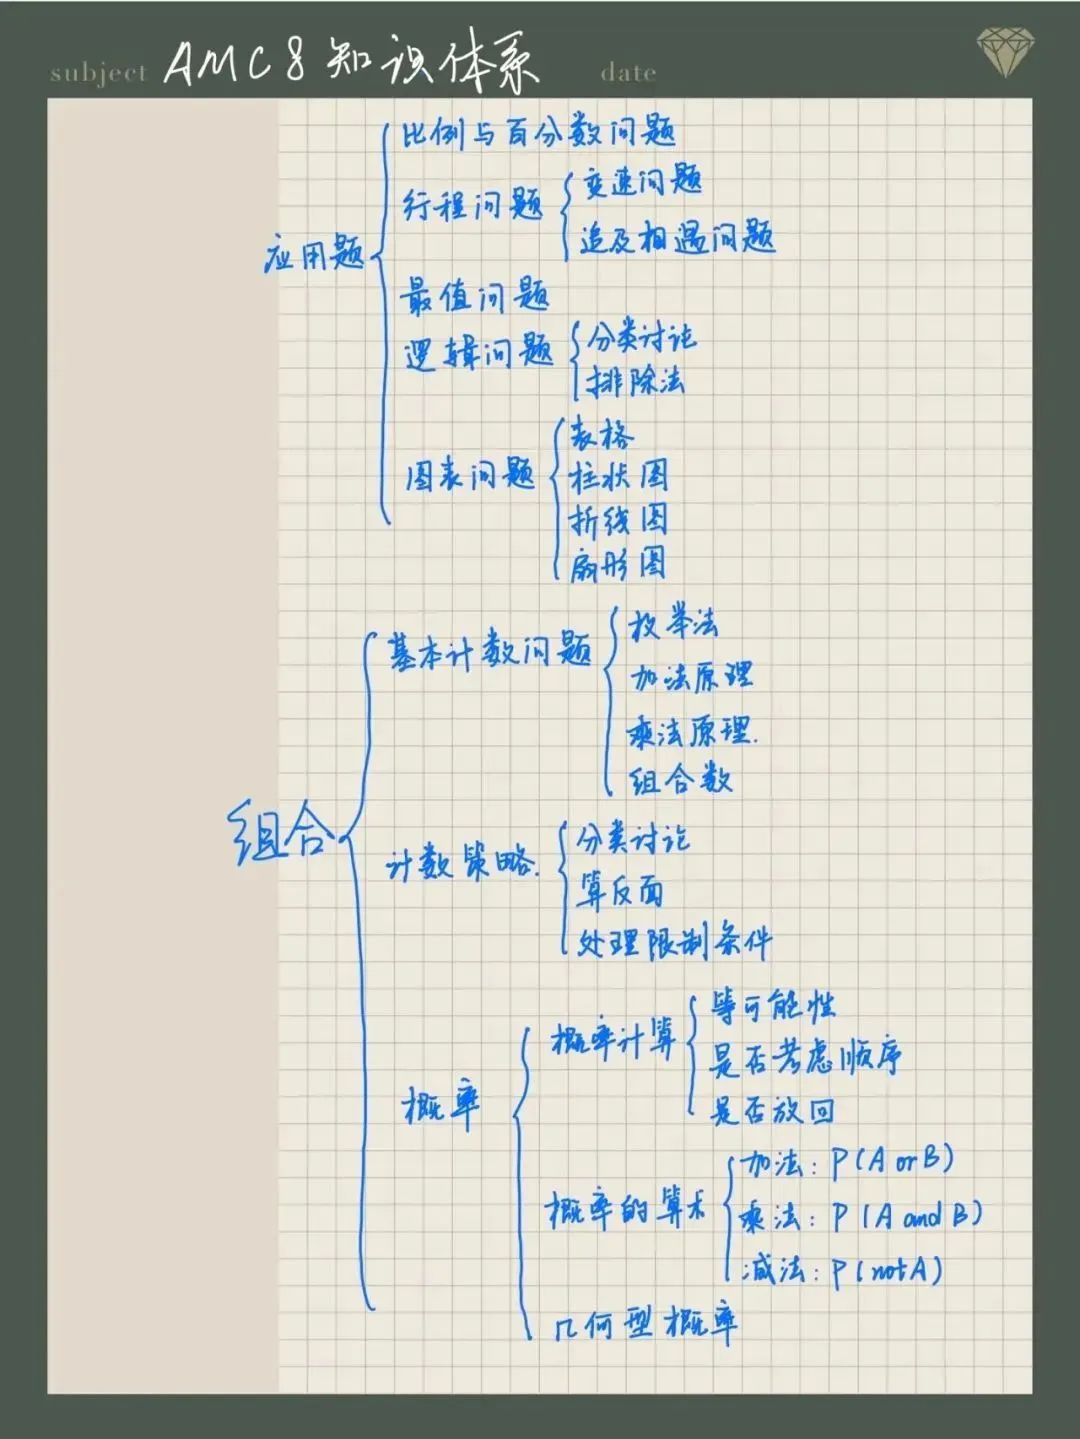 subject AMC8知识体系 date
比例与百分数问题
变速问题
行程问题
追及相遇问题
应用题
最值问题
分类讨论
逻辑问题
排除法
表格
图表问题
柱状图
折线图
扇形图
枚举法
基本计数问题
加法原理
乘法原理.
组合数
组合
分类讨论
计数策略.
算反面
处理限制条件
等可能性
概率计算
是否考虑顺序
概率
是否放回
加法: P(A or B)
概率的算术
乘法: P(A and B)
减法: P(not A)
几何型概率